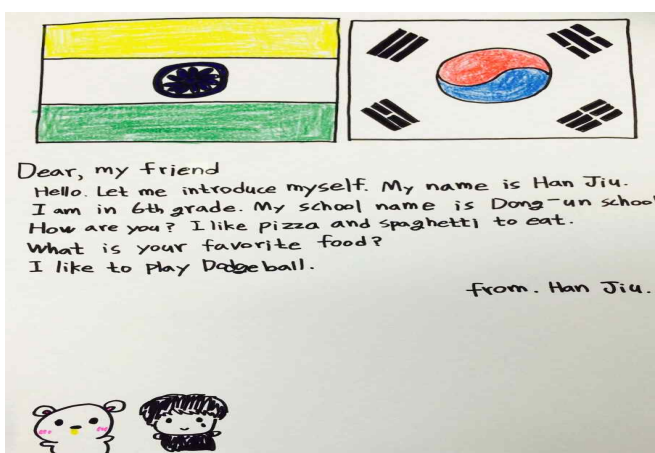 Dear, my friend
Hello. Let me introduce myself. My name is Han Jiu.
I am in 6th grade. My school name is Dong-un school
How are you? I like pizza and spaghetti to eat.
What is your favorite food?
I like to play Dodgeball.
from. Han Jiu.